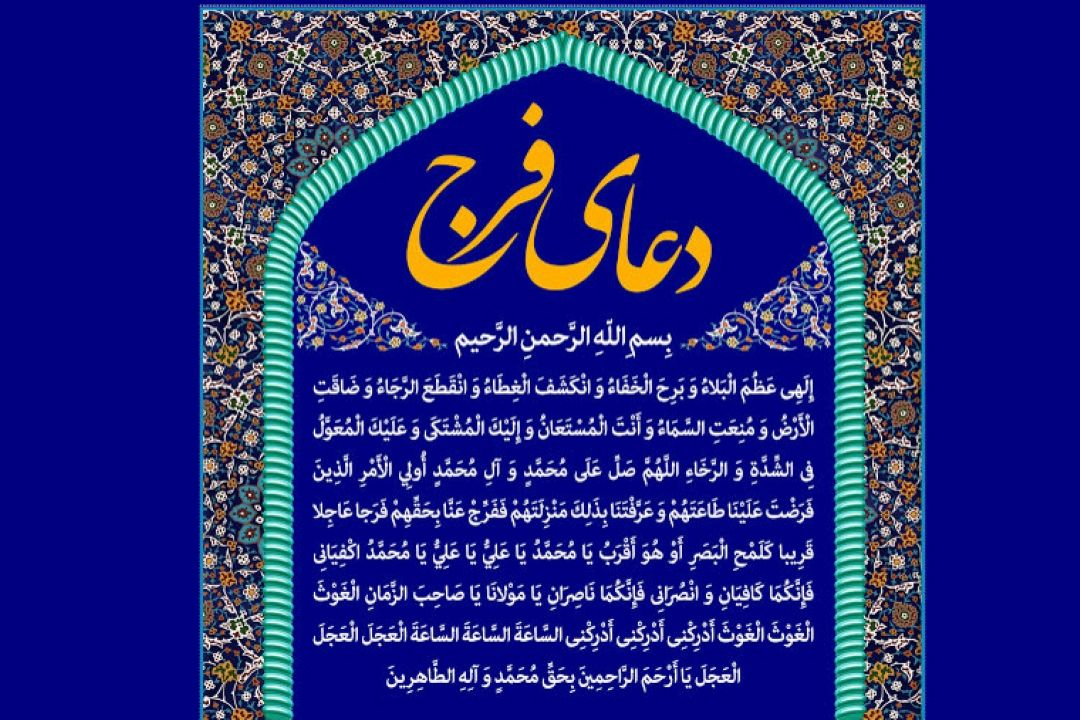 دعای فرج
بِسمِ اللّهِ الرَّحمنِ الرَّحیم
إِلَهِی عَظُمَ الْبَلاءُ وَ بَرِحَ الْخَفَاءُ وَ انْكَشَفَ الْغِطَاءُ وَ انْقَطَعَ الرَّجَاءُ وَ ضَاقَتِ
الْأَرْضُ وَ مُنِعَتِ السَّمَاءُ وَ أَنْتَ الْمُسْتَعَانُ وَ إِلَيْكَ الْمُشْتَكَى وَ عَلَيْكَ الْمُعَوَّلُ
فِی الشِّدَّةِ وَ الرَّخَاءِ اللَّهُمَّ صَلِّ عَلَى مُحَمَّدٍ وَ آلِ مُحَمَّدٍ أُولِي الْأَمْرِ الَّذِينَ
فَرَضْتَ عَلَيْنَا طَاعَتَهُمْ وَ عَرَّفْتَنَا بِذَلِكَ مَنْزِلَتَهُمْ فَفَرِّجْ عَنَّا بِحَقِّهِمْ فَرَجا عَاجِلا
قَرِیبا كَلَمْحِ الْبَصَرِ أَوْ هُوَ أَقْرَبُ يَا مُحَمَّدُ يَا عَلِيُّ يَا عَلِيُّ يَا مُحَمَّدُ اكْفِيَانِی
فَإِنَّكُمَا كَافِيَانِ وَ انْصُرَانِی فَإِنَّكُمَا نَاصِرَانِ يَا مَوْلانَا يَا صَاحِبَ الزَّمَانِ الْغَوْثَ
الْغَوْثَ الْغَوْثَ أَدْرِكْنِی أَدْرِكْنِی أَدْرِكْنِی السَّاعَةَ السَّاعَةَ السَّاعَةَ الْعَجَلَ الْعَجَلَ
الْعَجَلَ يَا أَرْحَمَ الرَّاحِمِينَ بِحَقِّ مُحَمَّدٍ وَ آلِهِ الطَّاهِرِينَ